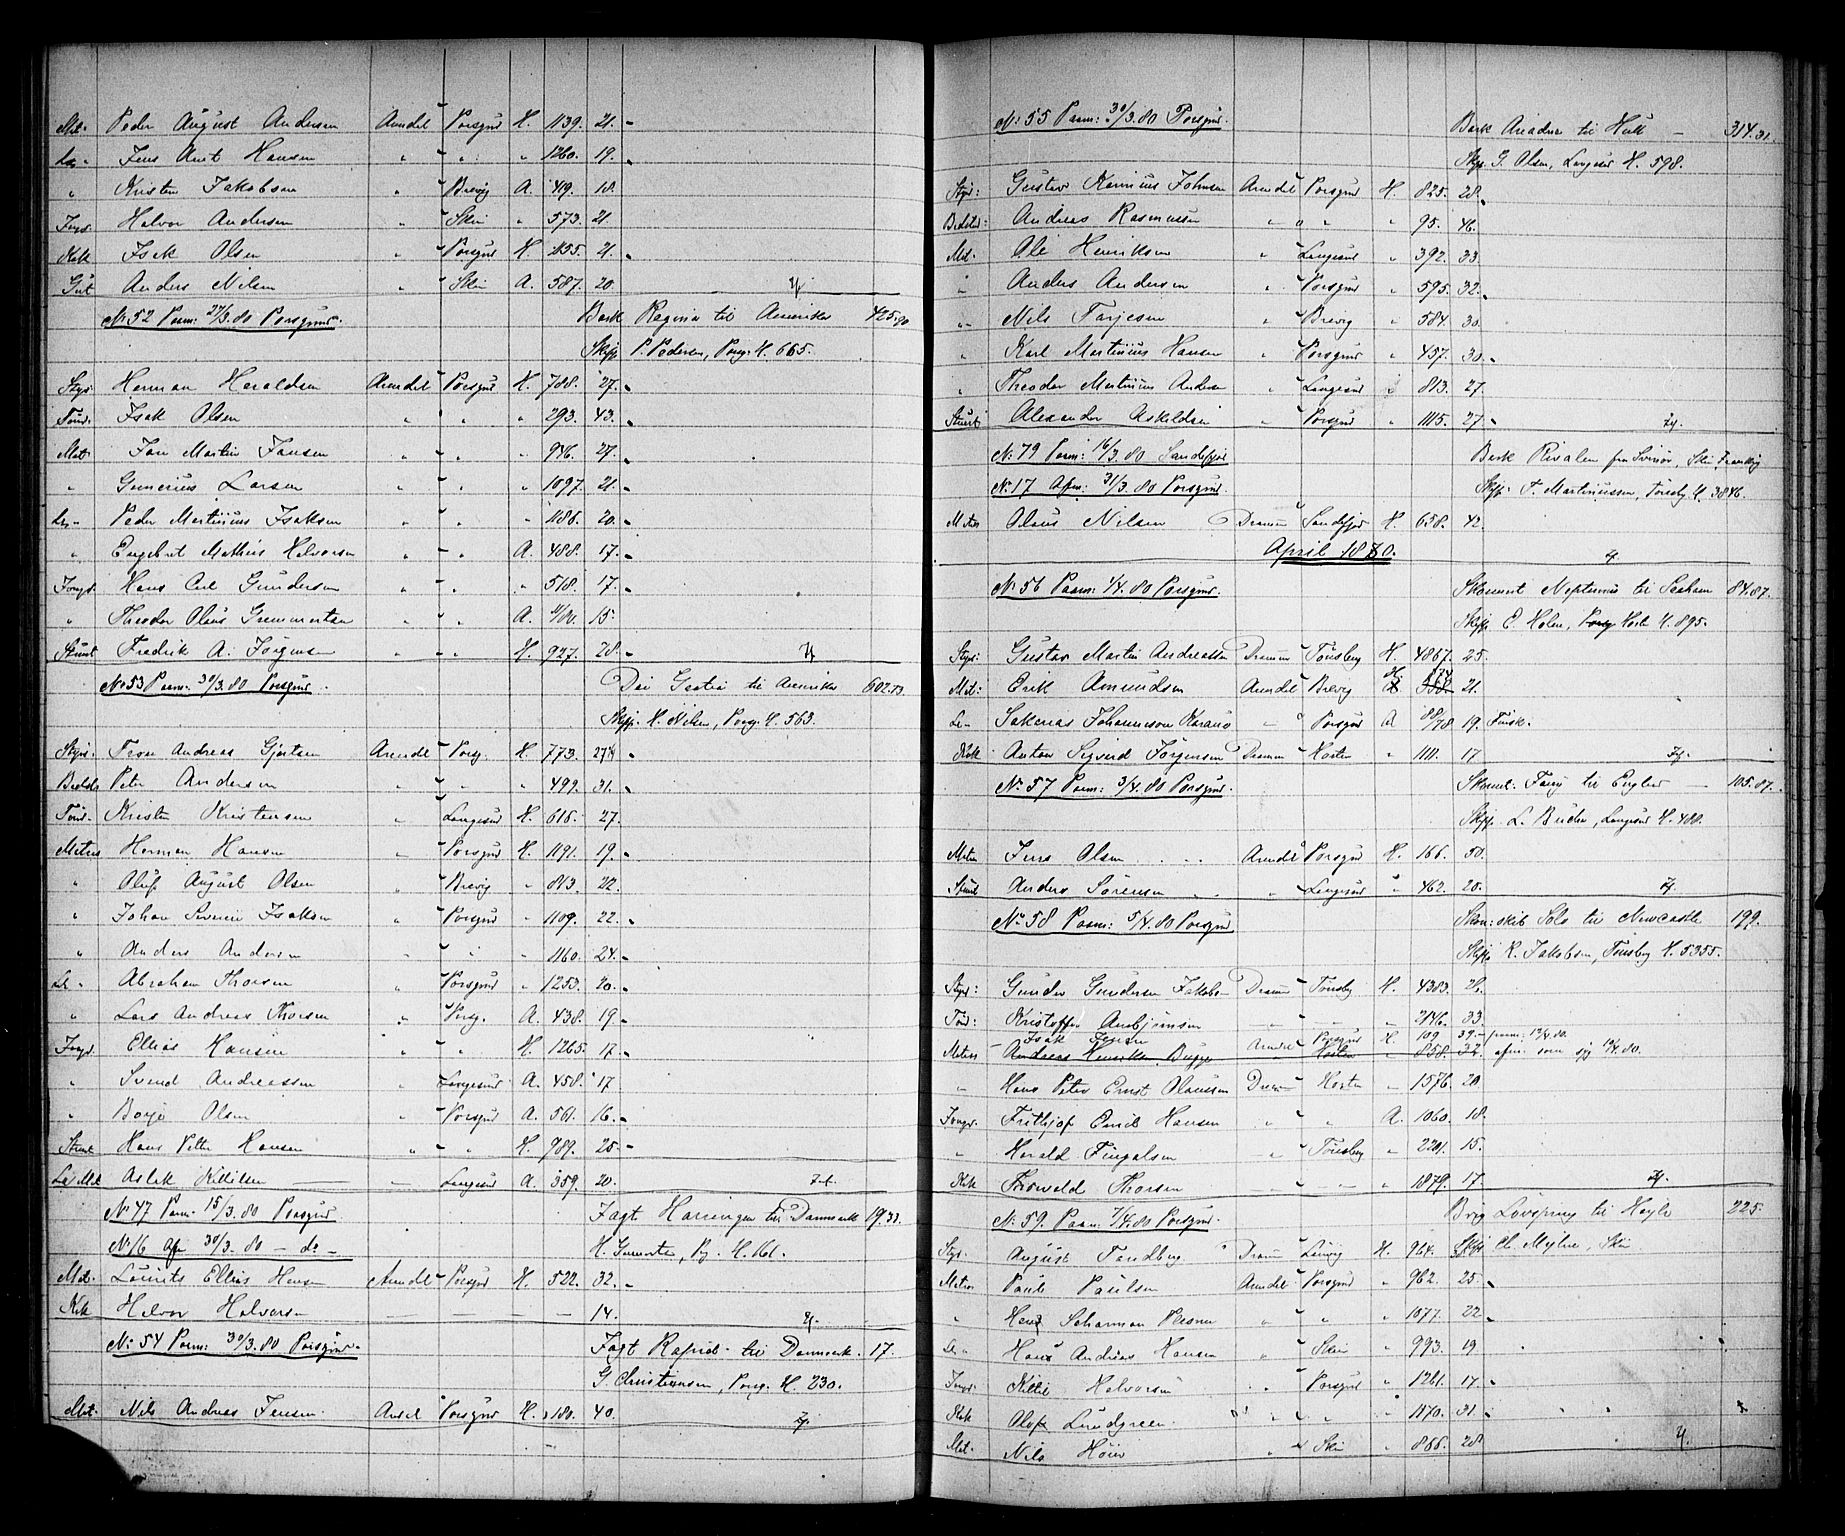 Mat. Peder August Andersen Arendal Porsgrd H. 1139. 21.
Le „ Jens Anit Hansen „ „ „ 1260. 19.
„ Kristen Jakobsen „ Brevig A. 419. 18.
Jngd. Halvor Andersen „ Skien „ 573. 21
Kok Isak Olsen „ Porsgrd H. 1155. 21.
Gut Anders Nilsen „ Skien A. 587. 20.
No 52 Paam: 27/3.80 Porsgrund. Bark Ragna til Amerika 425.90
Skipp. P. Pedersen, Porsg. H. 665.
Styr. Herman Haraldsen Arendal Porsgrd H. 788. 27.
Tømd. Isak Olsen „ „ „ 293. 43.
Mat. Jan Martin Jansen „ „ „ 946. 27.
„ Gunerius Larsen „ „ „ 1097. 21.
Le „ Peder Martinius Isaksen „ „ „ 1186. 20.
„ Engebret Mathias Halvorsen „ „ A. 488. 17.
Jngd. Hans Carl Gundersen „ „ „ 518. 17.
„ Theodor Olaus „ „ A. 15.
Stuert Fredrik A. Jörgensen „ „ H. 927. 28.
No 53 Paam: 30/3.80 Porsgrund. Do til Amerika 602.73
Skipp. H. Nilsen, Porsg. H. 563.
Styr. Andreas Gjertsen Arendal Porsg. H. 773. 27
Bedstd. Peter Andersen „ „ „ 499. 31.
Tømd. Kristen Kristensen „ Langesund H. 616. 27.
Matros Herman Hansen „ Porsgrd H. 1191. 19.
„ Oluf August Olsen „ Brevig „ 813. 22.
„ Johan Severin Isaksen „ Porsgrd „ 1109. 22.
„ Anders Andersen „ „ „ 1160. 24.
Le „ Abraham Thorsen „ Porsgrd „ 1253. 20.
„ Lars Andreas Thorsen „ Porsg. A. 438. 19.
Jngd. Ellias Hansen „ „ H. 1265. 17.
„ Svend Andreassen „ Langesund A. 458. 17
„ Börje Olsen „ Porsgrd A. 561. 16.
Stuert Hans Petter Hansen „ „ H. 989. 25.
Le Mat Aslak Kittilsen — Langesund A. 359. 20.
No 47 Paam: 15/3.80 Porsgrd Jagt til Danmark 19.33.
No 16 Afm 30/3.80 — do —
Mat. Laurits Ellias Hansen Arendal Porsgrd H. 522. 32.
Kok Halvor Halvorsen — — — 14.
No 54 Paam: 30/3.80 Porsgrund. Jagt Rapid til Danmark. 17.
G. Christiansen, Porsg. H. 230.
Mat. Nils Andreas Jensen. Arendal Porsgrd H. 180. 40.
No 55 Paam: 30/3.80 Porsgrund. Bark Ariadne til Hull — 314.31.
Skipp. G. Olsen, Langesund H. 598.
Styr: Gustav Johnsen Arendal Porsgrd H. 825. 28.
Bedstd: Andreas Rasmussen „ „ „ 95. 46.
Mat. Ole Henriksen „ Langesund „ 392. 33
„ Anders Andersen „ Porsgrd „ 595. 32.
„ Nils Tarjesen „ Brevig „ 584. 30.
„ Karl Martinius Hansen „ Porsgrund „ 457. 30.
„ Theodor Martinius Andersen „ Langesund „ 813. 27
Stuert Alexander Askildsen „ Porsgrd „ 1115. 27.
No. 79 Paam: 16/3.80 Sandefjord Bark Rivalen fra Svinör, Skien
No. 17 Afm: 31/3.80 Porsgrund. Skipp. T. Martinussen, Tönsbg H. 3846.
Matros Olaus Nilsen Dramm Sandefjord H. 658. 42.
April 1880.
No. 56 Paam: 1/4.80 Porsgrund. Skonnert Neptunus til Seaham 84.87.
Skipp. E. Holm, Porsg Horten H. 895.
Styr: Gustav Martin Andreassen Dramm Tönsberg H. 4867. 25.
Mat: Erik Amundsen Arendal Brevig 21.
Le— Sakarias Johannesson — Porsgrd A 88/78. 19. Finsk.
Kok Anton Sigvard Jörgensen Dramm Horten „ 1111. 17
No. 57 Paam: 3/4.80 Porsgrund. Skonnert. Fanny til England — 105.87.
Skipp. L. Langesund H. 488.
Matros Jens Olsen Arendal Porsgrd H. 166. 50.
Stuert Anders Sörensen „ Langesund „ 462. 20.
No 58 Paam: 5/4.80 Porsgrund Skon: skib Solo til Newcastle 199.
Skipp. R. Jakobsen, Tönsberg H. 5355.
Styr: Gunder Gundersen Jakobs— Dramm Tönsbg H. 4383. 26.
Töm: Kristoffer Ambjörnsen — „ — 2146. 33.
Isak Jensen Arendal Porsgrd H. 109. 39. paam: 12/4.80.
Matros Andreas Henriksen Bugge Horten „ 858. 32. afm. som syg 12/4.80.
„ Hans Peter Ernst Olaussen Dram— Horten „ 1576. 20
Jngd. Frithjof Emil Hansen „ „ A. 1060. 18.
„ Harald Fingalsen „ Tönsberg „ 2201. 15.
Kok Thorvald Thorsen — „ — „ 1879. 17.
No. 59. Paam. 7/4.80 Porsgrund. Brig Lövspring til 225.
Styr. August Tandberg Dramm Larvig H. 964. Skipp. Ch. Myhre, Skien
Matros Paul Paulsen Arendal Porsgrd „ 962. 25.
„ Hans „ „ „ 1077. 22.
Le „ Hans Andreas Hansen „ Skien „ 993. 19
Jngd. Kittil Halvorsen „ Porsgrd „ 1261. 17.
Kok Olof Lundgreen „ „ „ 1170. 31.
Mat. Nils Höier „ Skien „ 866. 28